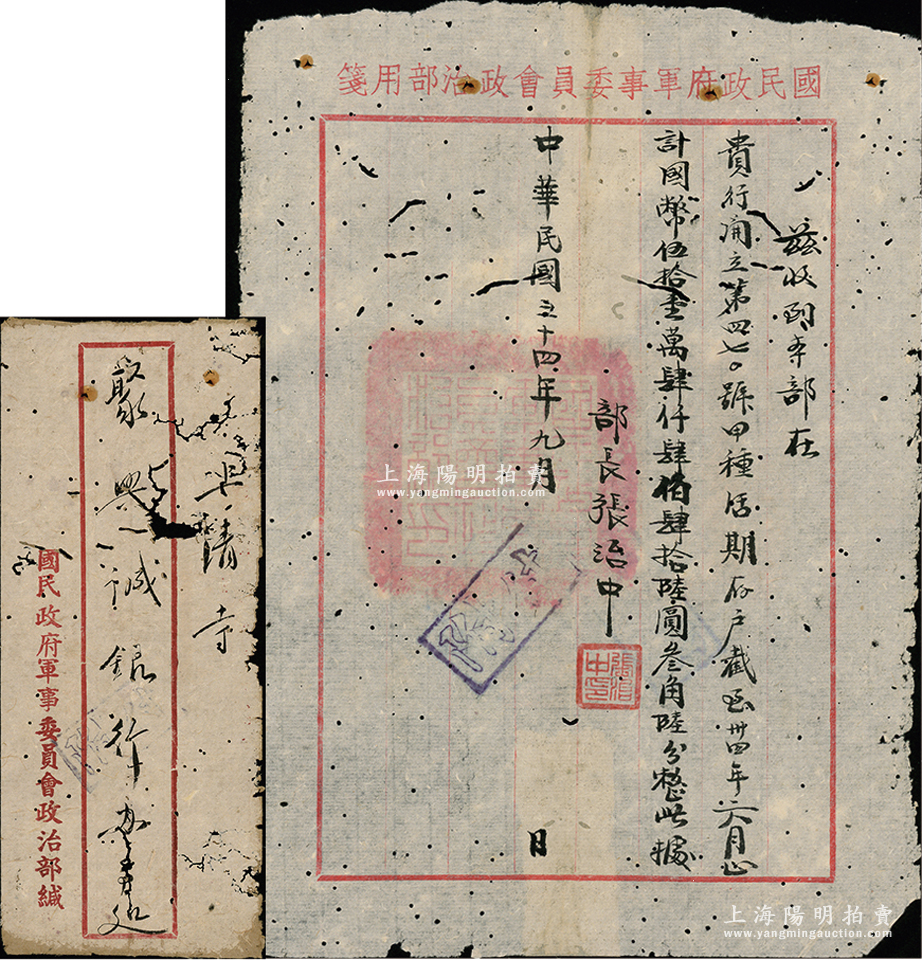 國民政府軍事委員會政治部用箋
茲收到本部在
貴行開立第四七〇號甲種活期存戶截至卅四年六月止
計國幣伍拾壹萬肆仟肆佰肆拾陸圓叁角陸分整此據
部長張治中
張治中印
中華民國三十四年九月 日
上清寺
聚興誠銀行辦事處
國民政府軍事委員會政治部緘
上海陽明拍賣
www.yangmingauction.com
上海陽明拍賣
www.yangmingauction.com